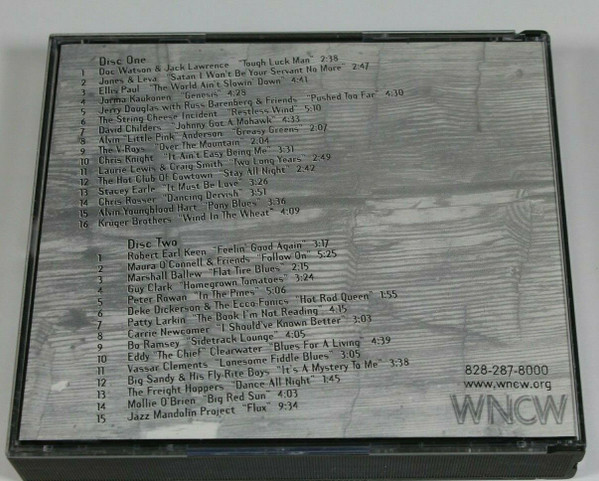 Disc One
1 Doc Watson & Jack Lawrence "Tough Luck Man" 2:38
2 Jones & Leva "Satan I Won't Be Your Servant No More" 2:47
3 Ellis Paul "The World Ain't Slowin' Down" 4:41
4 Jorma Kaukonen "Genesis" 4:28
5 Jerry Douglas with Russ Barenberg & Friends "Pushed Too Far" 4:30
6 The String Cheese Incident "Restless Wind" 5:10
7 David Childers "Johnny Got A Mohawk" 4:33
8 Alvin "Little Pink" Anderson "Greasy Greens" 2:07
9 The V-Roys "Over The Mountain" 2:04
10 Chris Knight "It Ain't Easy Being Me" 3:31
11 Laurie Lewis & Craig Smith "Two Long Years" 2:49
12 The Hot Club Of Cowtown "Stay All Night" 2:42
13 Stacey Earle "It Must Be Love" 3:26
14 Chris Rosser "Dancing Dervish" 3:51
15 Alvin Youngblood Hart "Pony Blues" 3:36
16 Kruger Brothers "Wind In The Wheat" 4:09
Disc Two
1 Robert Earl Keen "Feelin' Good Again" 3:17
2 Maura O'Connell & Friends "Follow On" 5:25
3 Marshall Ballew "Flat Tire Blues" 2:15
4 Guy Clark "Homegrown Tomatoes" 3:24
5 Peter Rowan "In The Pines" 5:06
6 Deke Dickerson & The Ecco-Fonics "Hot Rod Queen" 1:55
7 Patty Larkin "The Book I'm Not Reading" 4:15
8 Carrie Newcomer "I Should've Known Better" 3:03
9 Bo Ramsey "Sidetrack Lounge" 4:05
10 Eddy "The Chief" Clearwater "Blues For A Living" 4:39
11 Vassar Clements "Lonesome Fiddle Blues" 3:05
12 Big Sandy & His Fly-Rite Boys "It's A Mystery To Me" 3:38
13 The Freight Hoppers "Dance All Night" 1:45
14 Mollie O'Brien "Big Red Sun" 4:03
15 Jazz Mandolin Project "Flux" 9:34
828-287-8000
www.wncw.org
WNCW